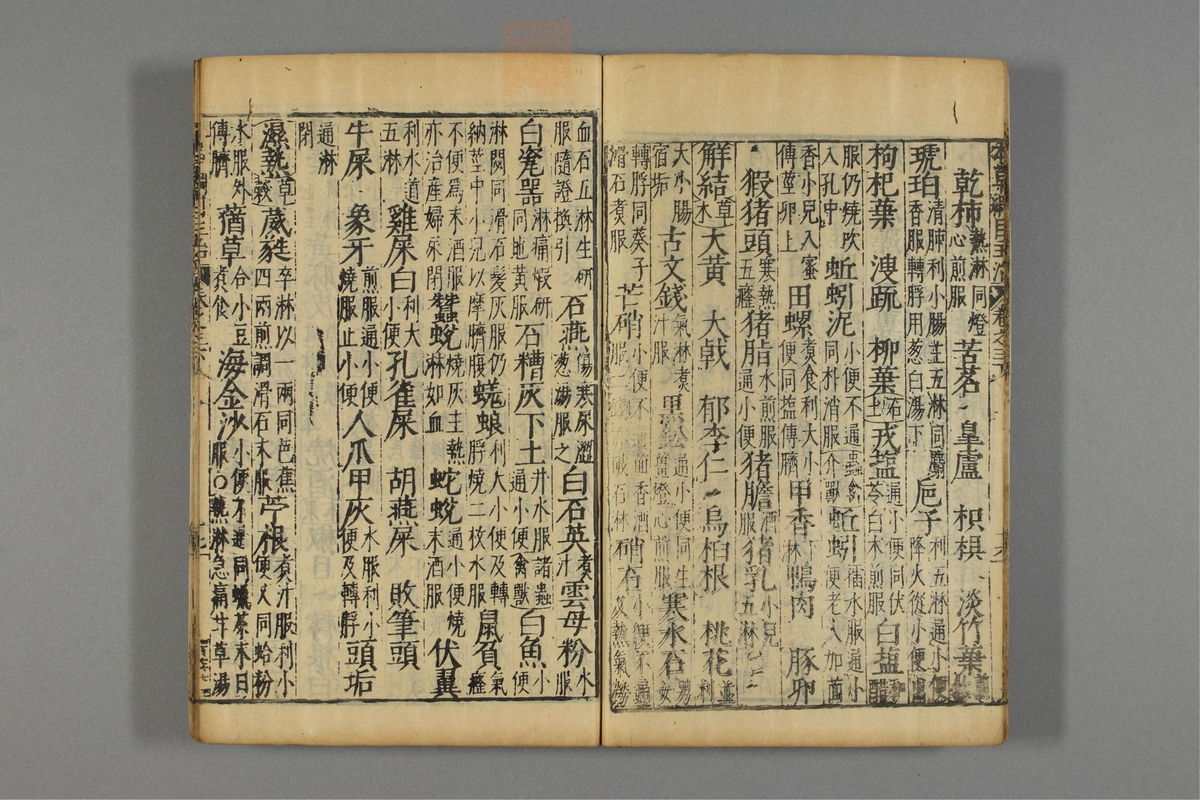 乾柿 熱淋同燈心煎服 苦茗 皇盧 枳椇 淡竹葉
琥珀 清肺利小腸主五淋同麝香服轉脬用葱白湯下 巵子 利五淋通小便降火從小便
枸杞葉 溲疏 柳葉 石土 戎塩 通小便同伏苓白朮煎服 白塩 醋
服仍燒吹入孔中 蚯蚓泥 小便不通同朴消服 蟲禽介獸 蚯蚓 擂水服通小便老人加茴
香小兒入蜜傅莖卵上 田螺 煮食利大小便同塩傅臍 甲香 淋 鴨肉 豚卵
豭猪頭 寒熱五癃 猪脂 水煎服通小便 猪膽 酒服 猪乳 小兒五淋
解結 草木 大黃 大戟 郁李仁 烏桕根 桃花 並利
大小腸宿垢 古文錢 氣淋煮汁服 黑鉛 通小便同生薑燈心煎服 寒水石 男女
轉脬同葵子滑石煮服 芒硝 小便不通茴香酒服二錢 破石淋 硝石 小便不通及熱氣勞
血石五淋生研服隨證換引 石燕 傷寒尿澀葱湯服之 白石英 煮汁 雲母粉 水服
白瓷器 淋痛煅研同地黃服 石糟灰下土 井水服通小便 諸蟲禽獸 白魚 小便
淋閟同滑石髮灰服仍納莖中小兒以摩臍腹 蜣蜋 利大小便及轉脬燒二枚水服 鼠負 氣癃
不便爲末酒服亦治產婦尿閉 蠶蛻 燒灰主熱淋如血 蛇蛻 通小便燒末酒服 伏翼
利水道五淋 雞屎白 利大小便 孔雀屎 胡燕屎 敗筆頭
牛屎 象牙 煎服通小便燒服止小便 人爪甲灰 水服利小便及轉脬 頭垢
通淋閉
濕熱 草穀 葳蕤 卒淋以一兩同芭蕉四兩煎調滑石末服 苧根 煮汁服利小便又同蛤粉
水服外傅臍 草 合小豆煮食 海金沙 小便不通同蠟茶末日服○熱淋急痛甘草湯